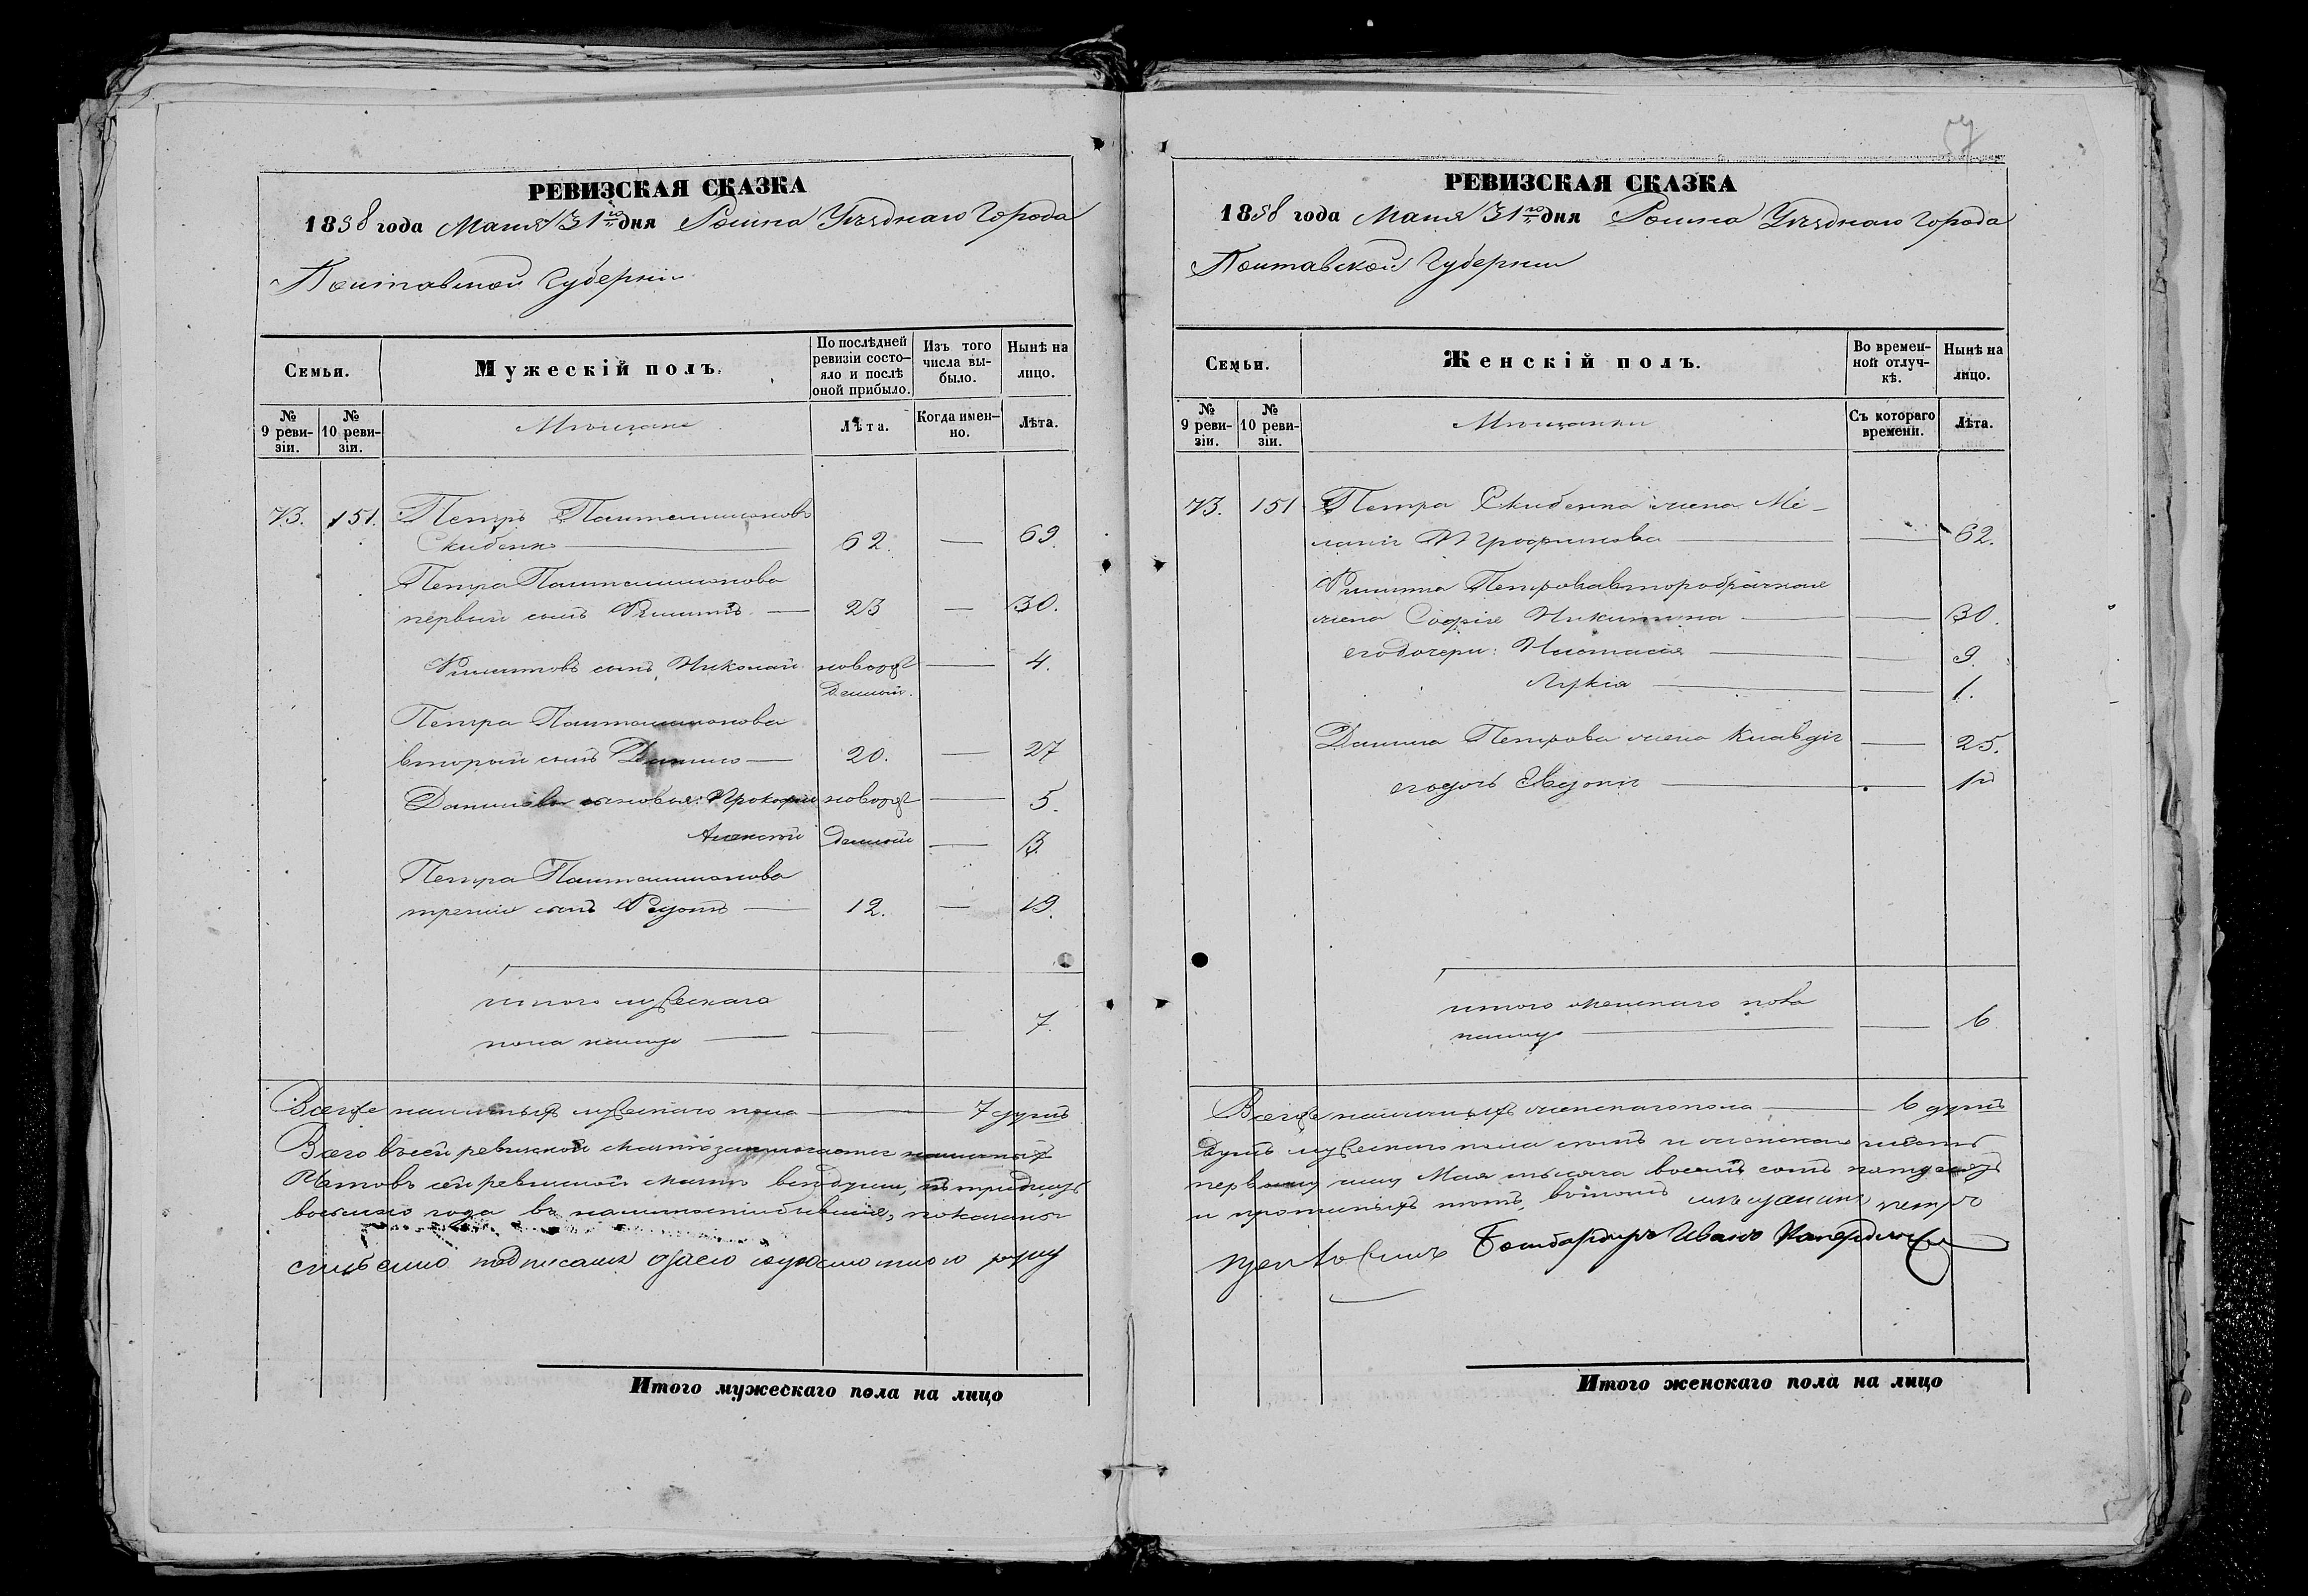 РЕВИЗСКАЯ СКАЗКА
1858 года Мая 31го дня Ромна Уѣзднаго Города
Полтавской Губерніи
Семьи.
Мужескій полъ.
По послѣдней ревизіи состо-
яло и послѣ оной прибыло.
Изъ того числа вы-
было.
Нынѣ на лицо.
№ 9 реви-
зіи.
№ 10 реви-
зіи.
Мѣщане
Лѣта.
Когда имен-
но.
Лѣта.
73. 151. Петръ Пантелимоновъ
Скибенко 62. 69.
Петра Пантелимонова
первый сынъ Филиппъ 23 30.
Филиповъ сынъ, Николай новорож 4.
денный.
Петра Пантелимонова
второй сынъ Данило 20. 27
Даниловы сыновья: Прокофий новорож 5.
Алексѣй денный 3.
Петра Пантелимонова
третий сынъ Федотъ 12. 19.
итого мужескаго
пола налицо 7.
Всегоже наличныхъ мужескаго пола 7 душъ
Всего въ сей ревизской сказкѣ заключается наличныхъ
восьмаго года въ наличности бывшіе, показаны
Скибенко
Итого мужескаго пола на лицо
57
РЕВИЗСКАЯ СКАЗКА
1858 года Мая 31го дня Ромна Уѣзднаго Города
Полтавской Губерніи
Семьи.
Женскій полъ.
Во времен-
ной отлуч-
кѣ.
Нынѣ на лицо.
№ 9 реви-
зіи.
№ 10 реви-
зіи.
Мѣщанки
Съ котораго времени.
Лѣта.
73. 151 Петра Скибенка жена Ме-
ланія 62.
Филиппа Петрова второбрачная
жена Софія Никитина 30.
его дочери: Настасія 9.
Лукія 1.
Данила Петрова жена Клавдія 25.
его дочь Евдокія 1½
итого женскаго пола
налицо 6
Всегоже наличныхъ женскаго пола 6 душъ
душъ мужескаго пола семь и женскаго шесть
Мая тысяча восемь сотъ пятдесятъ
и прописныхъ нѣтъ, въ томъ мѣщанинъ Петръ
Бомбардиръ Иванъ
Итого женскаго пола на лицо